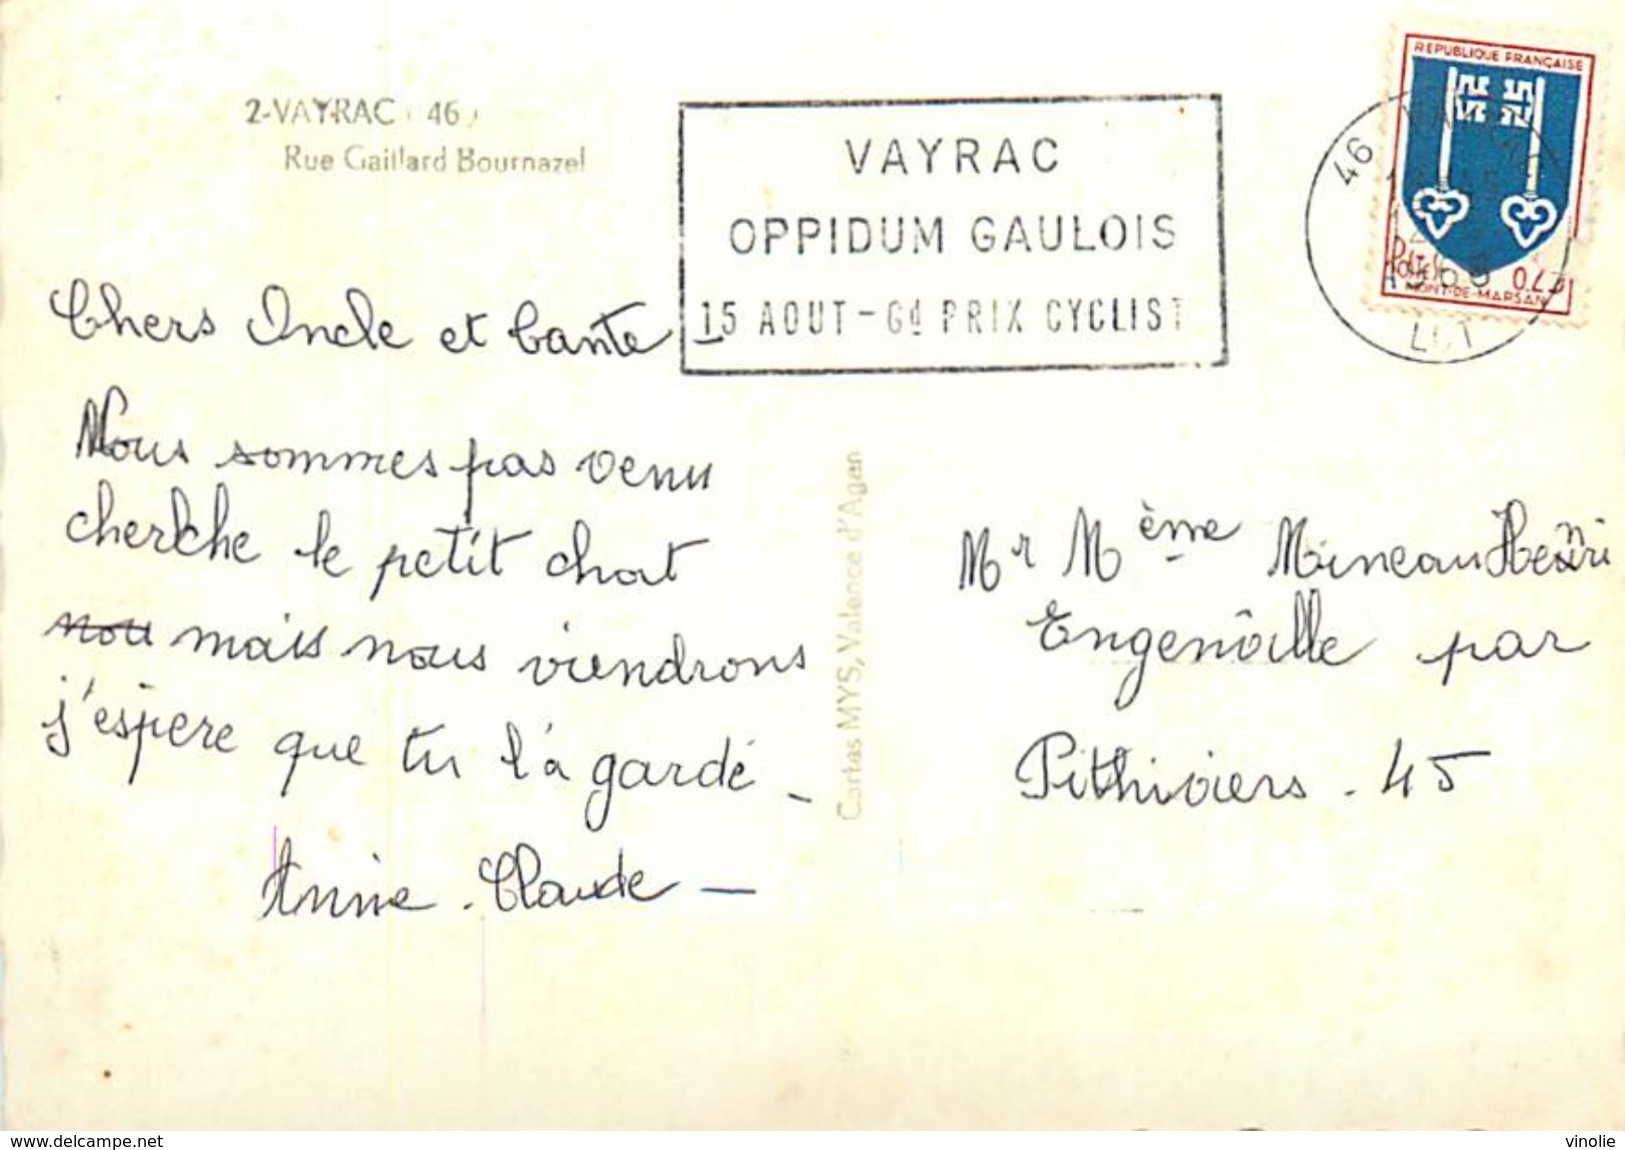 2-VAYRAC (46)
Rue Gaillard Bournazel
VAYRAC
OPPIDUM GAULOIS
15 AOUT - Gd PRIX CYCLIST
REPUBLIQUE FRANÇAISE
POSTES 0,25
MONT-DE-MARSAN
46 VAYRAC
1968
LOT
Chers Oncle et Tante
Nous sommes pas venu
cherche le petit chat
nou mais nous viendrons
j'espere que tu l'à gardé -
Annie - Claude -
Cartas MYS, Valence d'Agen
Mr Mème Mineau Henri
Engenôille par
Pithiviers - 45
www.delcampe.net
vinolie